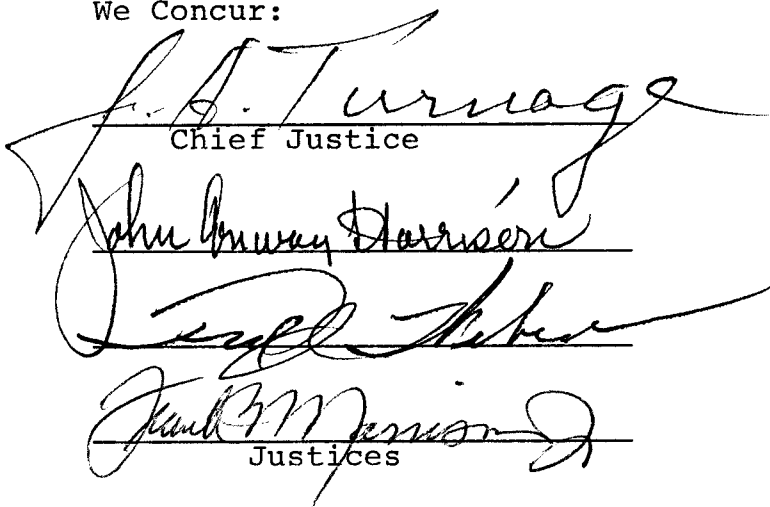 We Concur:
J. A. Turnage
Chief Justice
John Conway Harrison
Frank B Morrison Jr
Justices